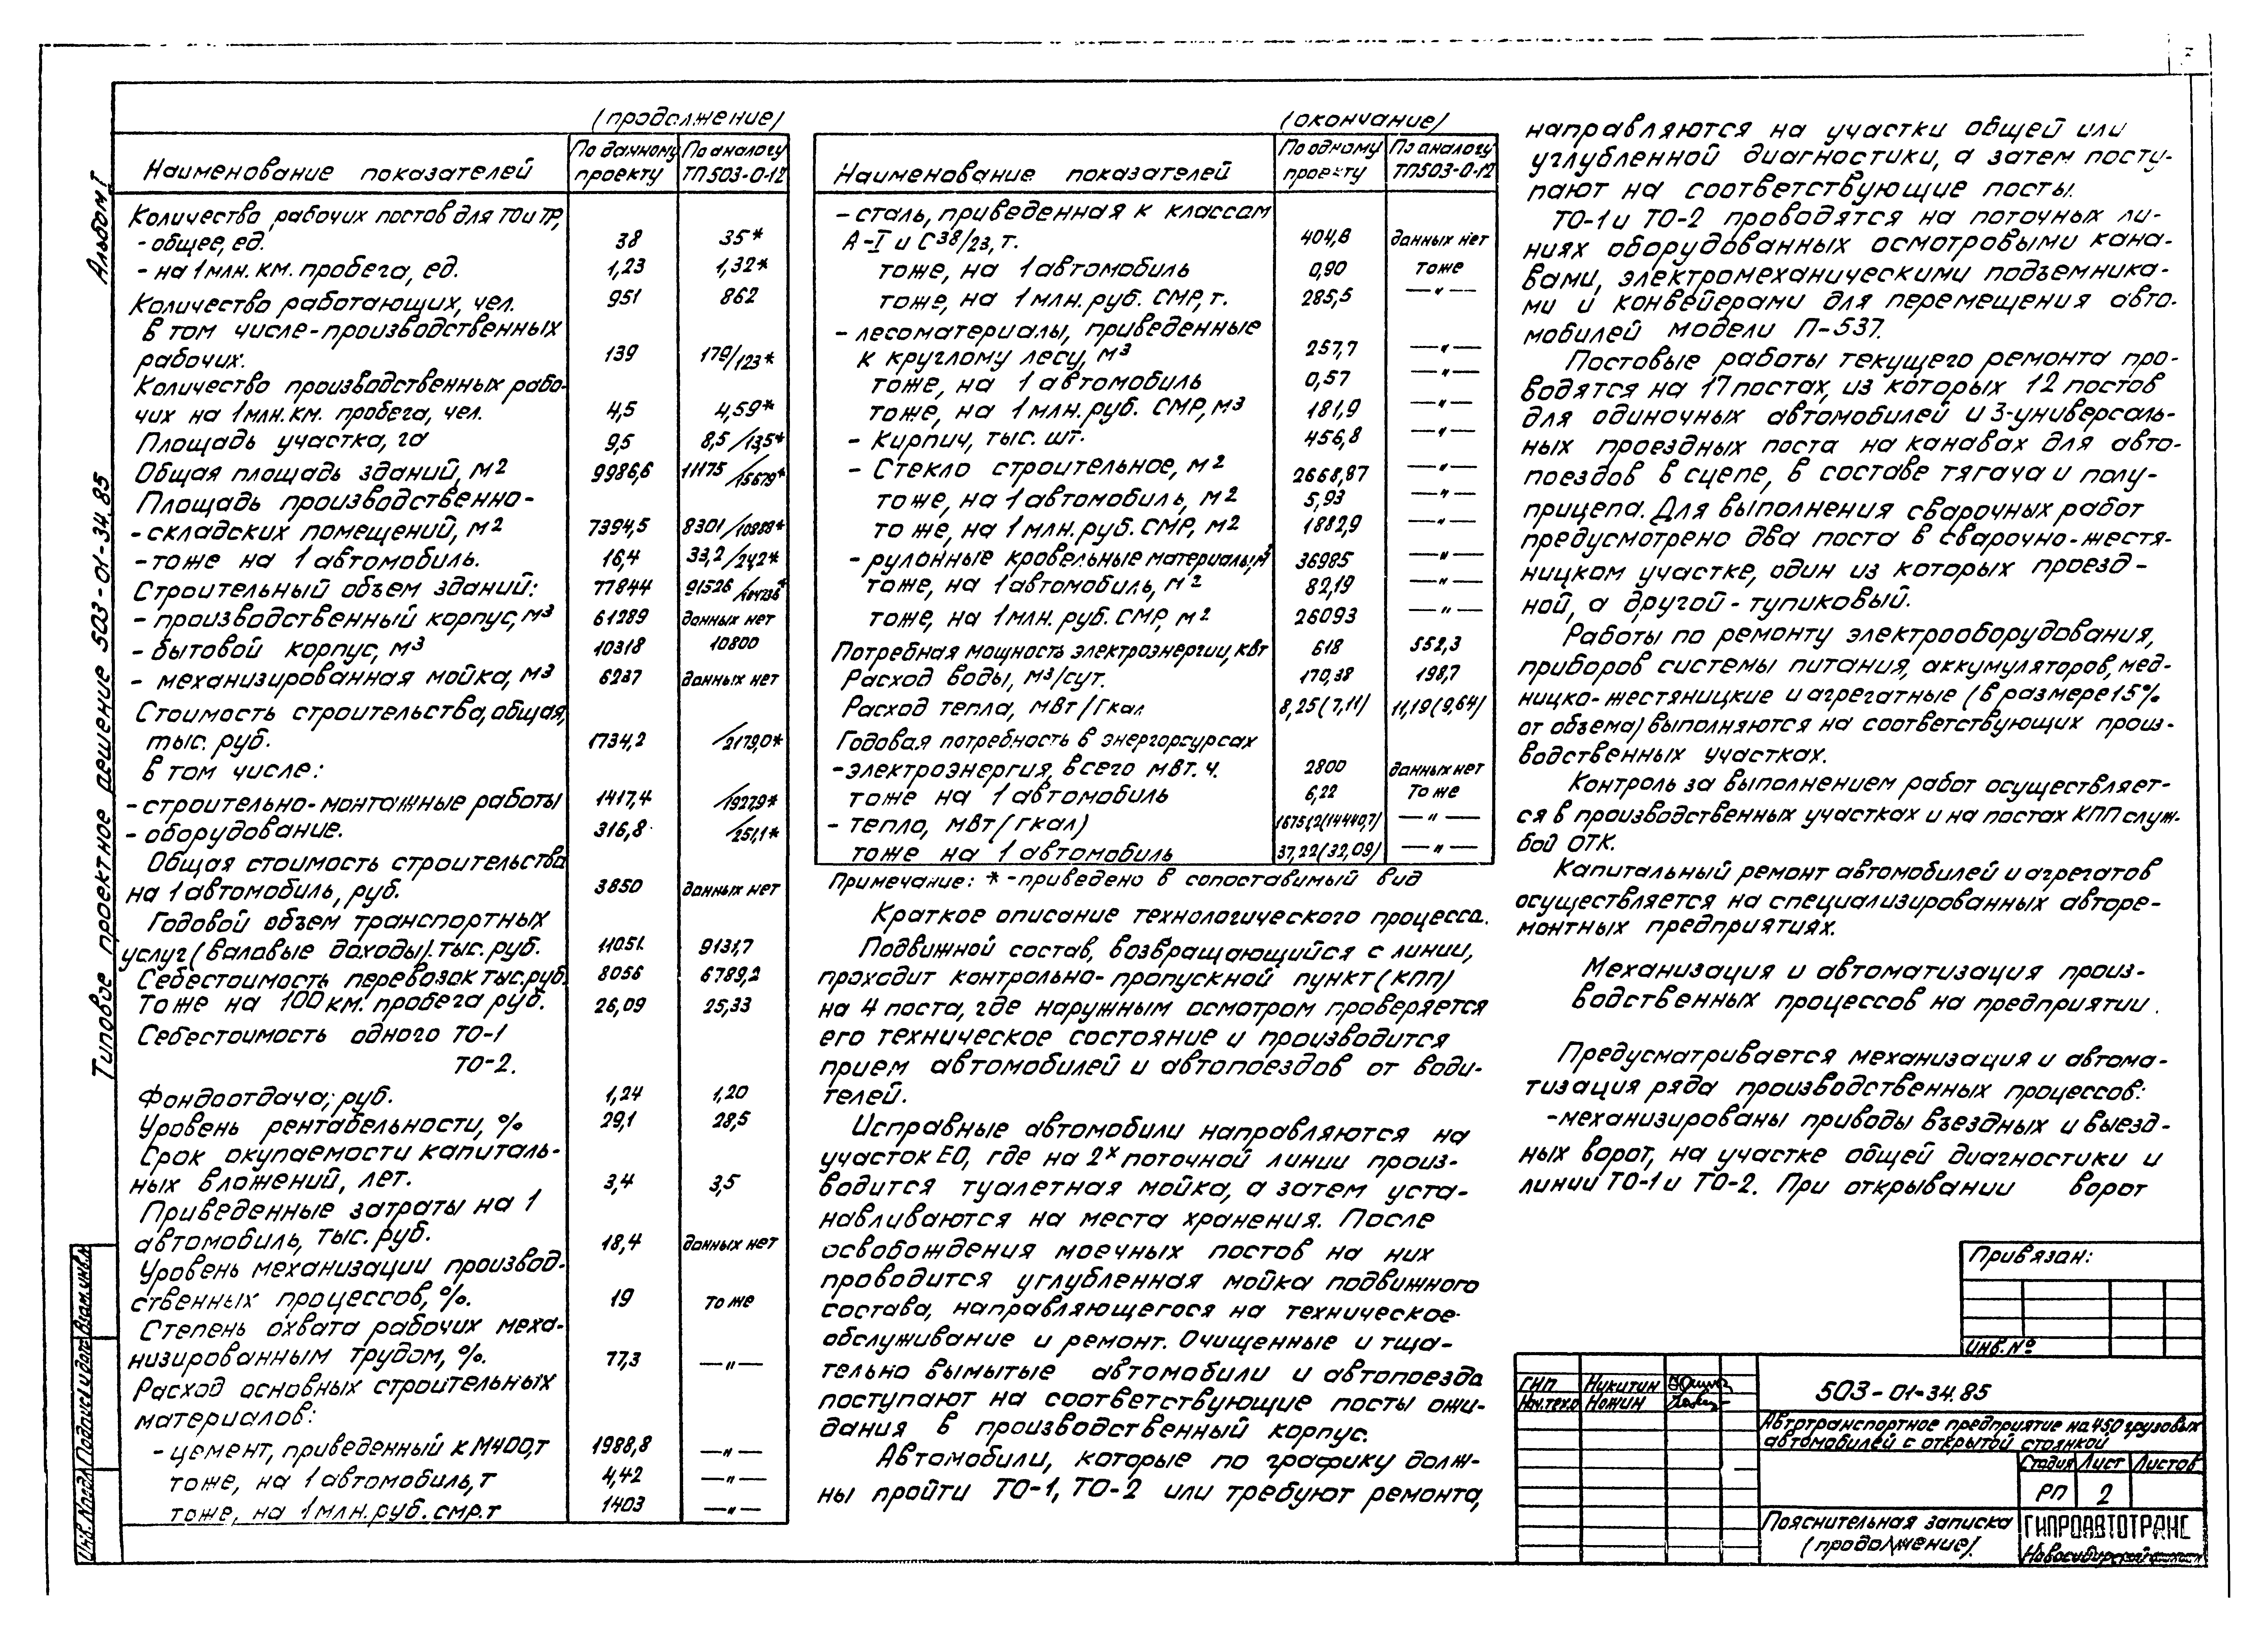 Альбом I
Типовое проектное решение 503-01-34.85
(продолжение)
Наименование показателей | По данному проекту | По аналогу ТП503-0-12
Количество рабочих постов для ТО и ТР,
- общее, ед. 38 35*
- на 1 млн. км. пробега, ед. 1,23 1,32*
Количество работающих, чел. 951 862
в том числе-производственных
рабочих. 139 179/123*
Количество производственных рабо-
чих на 1 млн. км. пробега, чел. 4,5 4,59*
Площадь участка, га 9,5 8,5/13,5*
Общая площадь зданий, м2 9986,6 11175/15679*
Площадь производственно-
- складских помещений, м2 7394,5 8301/10888*
- тоже на 1 автомобиль. 16,4 33,2/24,2*
Строительный объем зданий: 77844 91526/
- производственный корпус, м3 61289 данных нет
- бытовой корпус, м3 10318 10800
- механизированная мойка, м3 6237 данных нет
Стоимость строительства, общая,
тыс. руб. 1734,2 /2179,0*
в том числе:
- строительно-монтажные работы 1417,4 /1927,9*
- оборудование. 316,8 /251,1*
Общая стоимость строительства
на 1 автомобиль, руб. 3850 данных нет
Годовой объем транспортных
услуг (валовые доходы). тыс. руб. 11051. 9131,7
Себестоимость перевозок тыс. руб. 8056 6789,2
Тоже на 100 км. пробега руб. 26,09 25,33
Себестоимость одного ТО-1
ТО-2.
Фондоотдача; руб. 1,24 1,20
Уровень рентабельности, % 29,1 28,5
Срок окупаемости капиталь-
ных вложений, лет. 3,4 3,5
Приведенные затраты на 1
автомобиль, тыс. руб. 18,4 данных нет
Уровень механизации производ-
ственных процессов, %. 19 тоже
Степень охвата рабочих меха-
низированным трудом, %. 77,3 —"—
Расход основных строительных
материалов:
- цемент, приведенный к М400, т 1988,8 —"—
тоже, на 1 автомобиль, т 4,42 —"—
тоже, на 1 млн. руб. смр. т 1403 —"—
(окончание)
Наименование показателей | По одному проекту | По аналогу ТП503-0-12
- сталь, приведенная к классам
А-I и С38/23, т. 404,8 данных нет
тоже, на 1 автомобиль 0,90 тоже
тоже, на 1 млн. руб. СМР, т. 285,5 —"—
- лесоматериалы, приведенные
к круглому лесу, м3 257,7 —"—
тоже, на 1 автомобиль 0,57 —"—
тоже, на 1 млн. руб. СМР, м3 181,9 —"—
- Кирпич, тыс. шт. 456,8 —"—
- Стекло строительное, м2 2668,87 —"—
тоже, на 1 автомобиль, м2 5,93 —"—
то же, на 1 млн. руб. СМР, м2 1882,9 —"—
- рулонные кровельные материалы, м2 36985 —"—
тоже, на 1 автомобиль, м2 82,19 —"—
тоже, на 1 млн. руб. СМР, м2 26093 —"—
Потребная мощность электроэнергии, квт 618 552,3
Расход воды, м3/сут. 170,38 198,7
Расход тепла, мвт/Гкал 8,25(7,11) 11,19(9,64)
Годовая потребность в энергорсурсах
- электроэнергия, всего мвт. ч. 2800 данных нет
тоже на 1 автомобиль 6,22 то же
- тепло, мвт (гкал) 16751,2(14440,7) —"—
тоже на 1 автомобиль 37,22(32,09) —"—
Примечание: * - приведено в сопоставимый вид
Краткое описание технологического процесса.
Подвижной состав, возвращающийся с линии,
проходит контрольно-пропускной пункт (КПП)
на 4 поста, где наружным осмотром проверяется
его техническое состояние и производится
прием автомобилей и автопоездов от води-
телей.
Исправные автомобили направляются на
участок ЕО, где на 2х поточной линии произ-
водится туалетная мойка, а затем уста-
навливаются на места хранения. После
освобождения моечных постов на них
проводится углубленная мойка подвижного
состава, направляющегося на техническое
обслуживание и ремонт. Очищенные и тща-
тельно вымытые автомобили и автопоезда
поступают на соответствующие посты ожи-
дания в производственный корпус.
Автомобили, которые по графику долж-
ны пройти ТО-1, ТО-2 или требуют ремонта,
направляются на участки общей или
углубленной диагностики, а затем посту-
пают на соответствующие посты.
ТО-1 и ТО-2 проводятся на поточных ли-
ниях оборудованных осмотровыми кана-
вами, электромеханическими подъемника-
ми и конвейерами для перемещения авто-
мобилей модели П-537.
Постовые работы текущего ремонта про-
водятся на 17 постах, из которых 12 постов
для одиночных автомобилей и 3-универсаль-
ных проездных поста на канавах для авто-
поездов в сцепе, в составе тягача и полу-
прицепа. Для выполнения сварочных работ
предусмотрено два поста в сварочно-жестя-
ницком участке, один из которых проезд-
ной, а другой - тупиковый.
Работы по ремонту электрооборудования,
приборов системы питания, аккумуляторов, мед-
ницко-жестяницкие и агрегатные (в размере 15%
от объема) выполняются на соответствующих произ-
водственных участках.
Контроль за выполнением работ осуществляет-
ся в производственных участках и на постах КПП служ-
бой ОТК.
Капитальный ремонт автомобилей и агрегатов
осуществляется на специализированных авторе-
монтных предприятиях.
Механизация и автоматизация произ-
водственных процессов на предприятии.
Предусматривается механизация и автома-
тизация ряда производственных процессов:
- механизированы приводы въездных и выезд-
ных ворот, на участке общей диагностики и
линии ТО-1 и ТО-2. При открывании ворот
Привязан:
Инв. №
ГИП Никитин
Нач.тех.о Ножин
503-01-34.85
Автотранспортное предприятие на 450 грузовых
автомобилей с открытой стоянкой
Стадия Лист Листов
РП 2
Пояснительная записка
(продолжение).
ГИПРОАВТОТРАНС
Новосибирский филиал
Инв. № подл. Подпись и дата Взам. инв. №